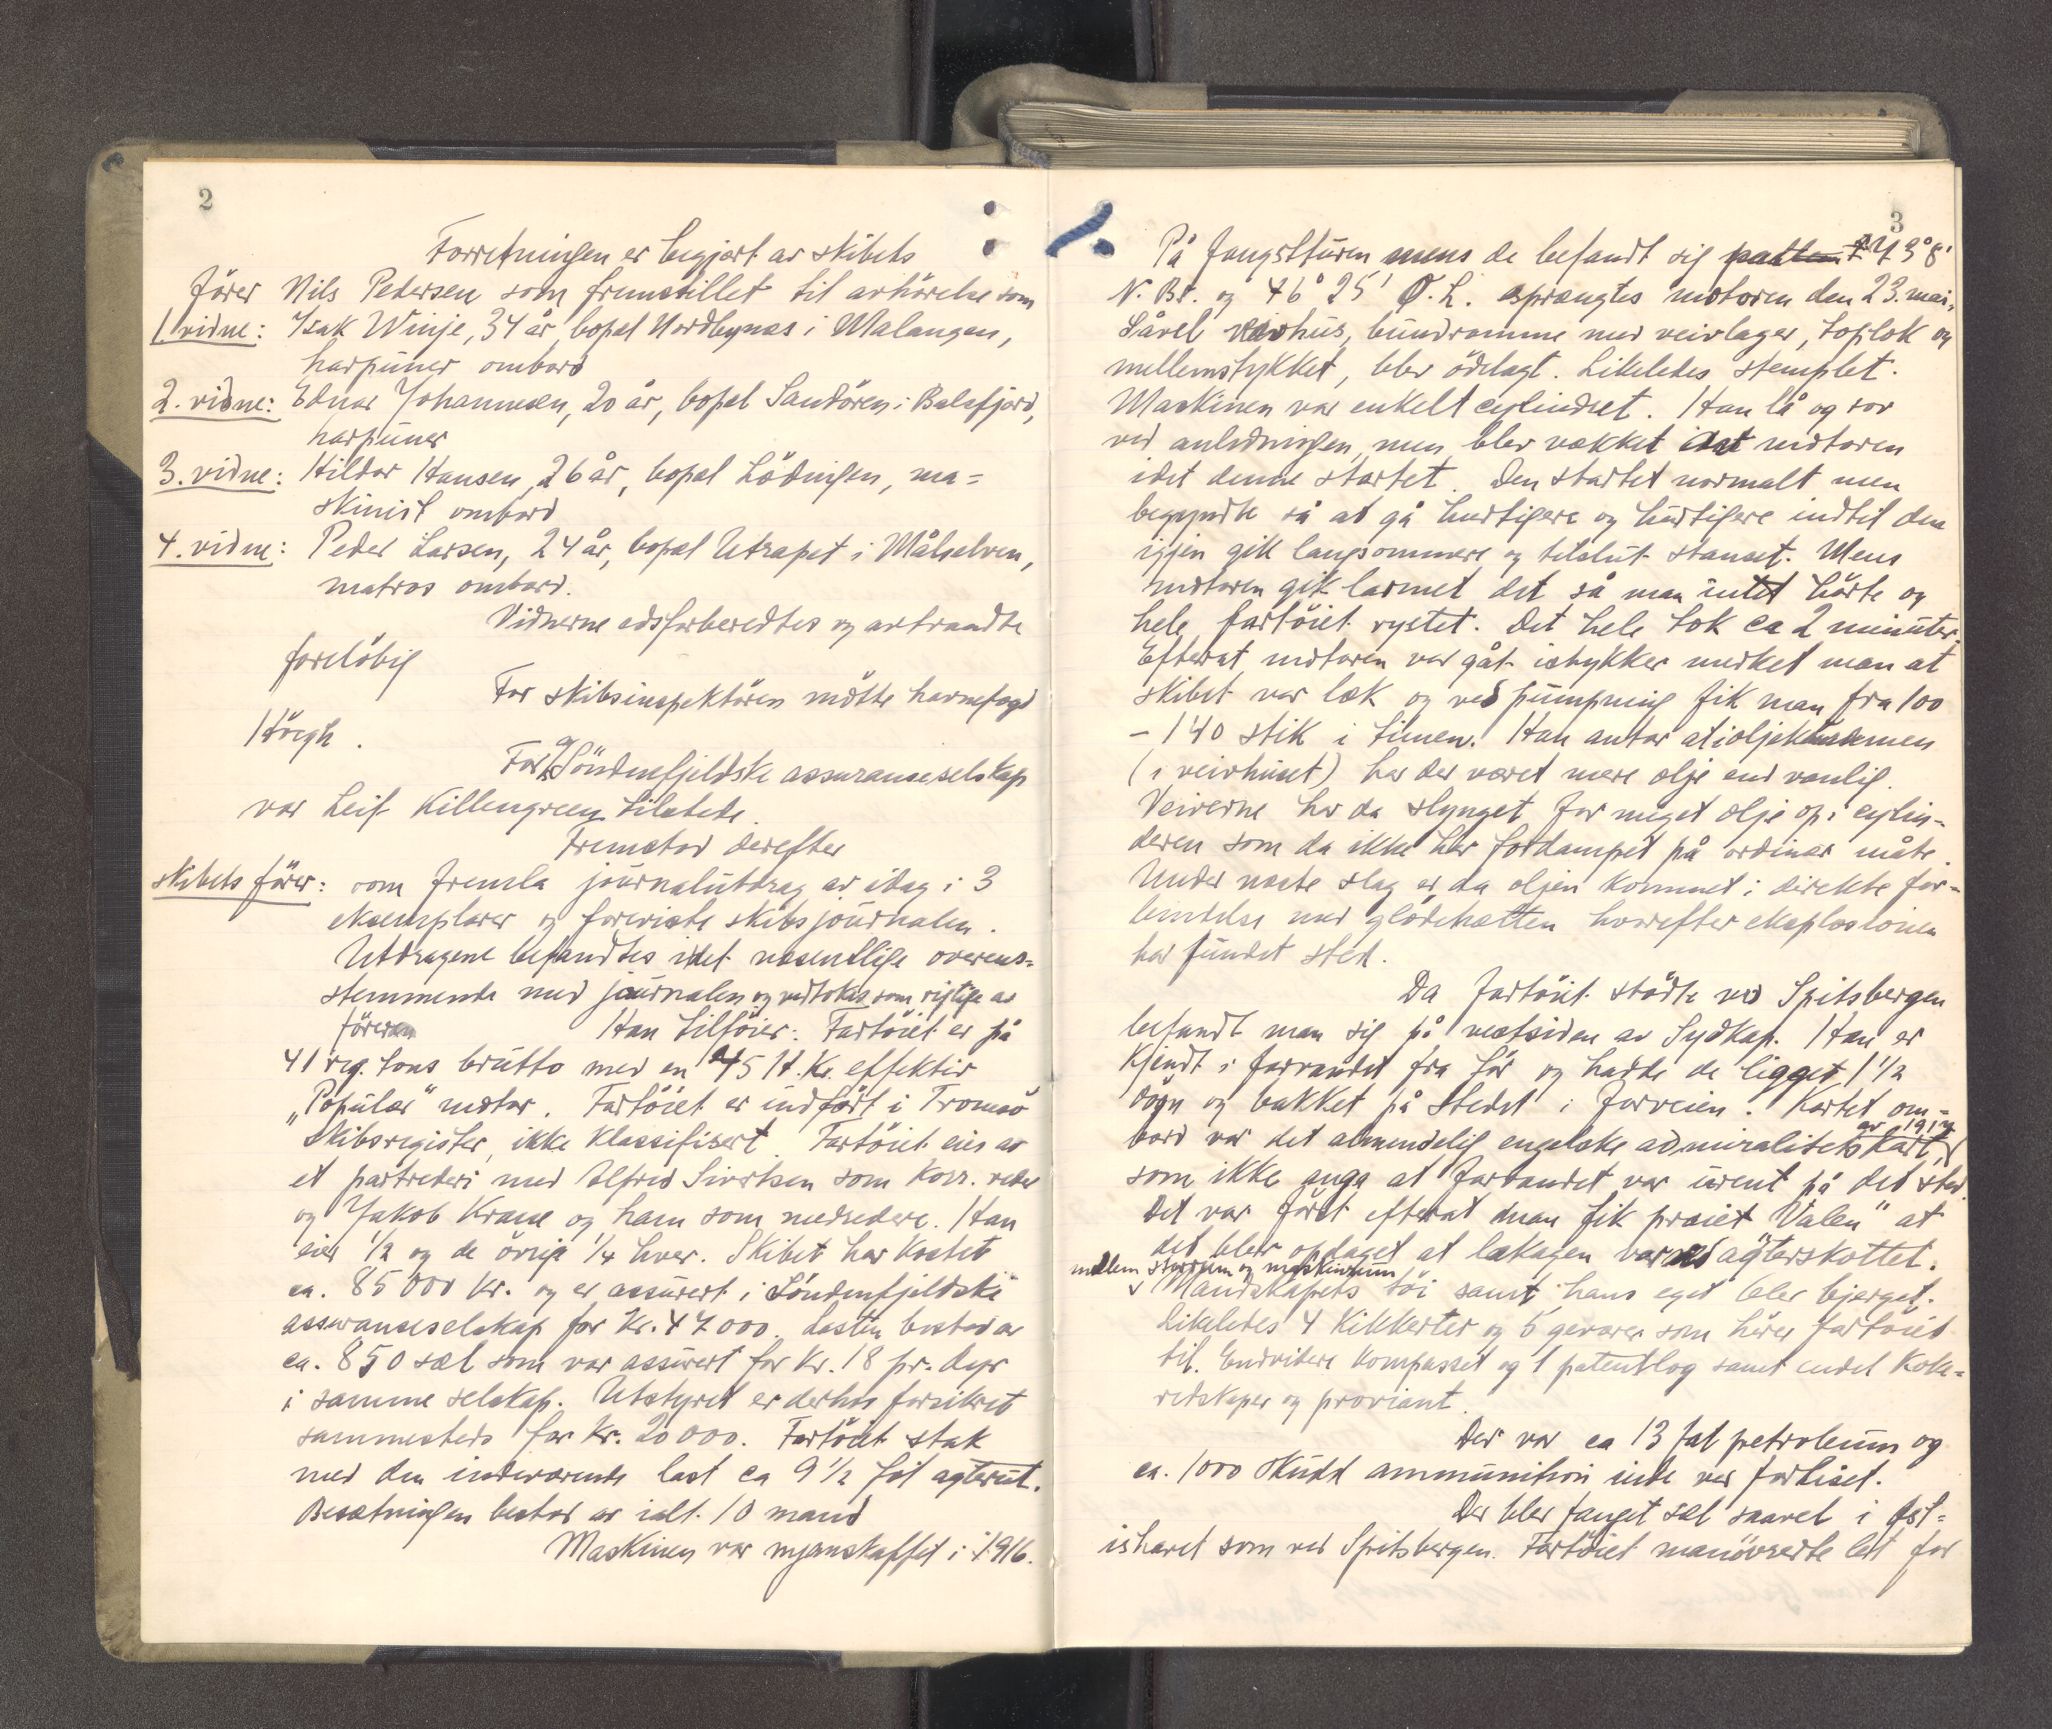 2
Forretningen er begjært av skibets
fører Nils Petersen som fremstillet til avhørelse som
1. vidne: Isak Winje, 34 år, bopæl Nordbynæs i Malangen,
harpuner ombord
2. vidne: Edvar Johannesen, 20 år, bopæl Sandøren i Balsfjord,
harpuner
3. vidne: Hildor Hansen, 26 år, bopæl Lødingen, ma-
skinist ombord
4. vidne: Peder Larsen, 24 år, bopæl i Målselven,
matros ombord.
Vidnerne edsforberedtes og avtraadte
foreløbig
For skibsinspektøren møtte havnefogd
Høegh.
For Søndenfjeldske assuranceselskap
var Leif Killengreen tilstede.
Fremstod derefter
skibets fører: som fremla journalutdrag av idag i 3
eksemplarer og foreviste skibsjournalen.
Utdragene befandtes i det væsentlige overens-
stemmende med journalen og vedtokes som rigtige av
føreren Han tilføier: Fartøiet er på
41 reg. tons brutto med en 45 H.K. effektiv
"Populær" motor. Fartøiet er indført i Tromsø
Skibsregister, ikke klassifisert. Fartøiet eies av
et partrederi med Alfred Sivertsen som korr. reder
og Jakob Krane og ham som medredere. Han
eier 1/2 og de øvrige 1/4 hver. Skibet har kostet
ca. 85000 kr. og er assurert i Søndenfjeldske
assuranceselskap for Kr. 47000. Lasten bestod av
ca. 850 sæl som var assurert for Kr. 18 pr. dyr
i samme selskap. Utstyret er derhos forsikret
sammesteds for Kr. 20000. Fartøiet stak
med den indeværende last ca 9 1/2 fot agterut.
Besætningen bestod av ialt 10 mand
Maskinen var nyanskaffet i 1916.
3
På fangstturen mens de befandt sig på 73° 8'
N. Br. og 46° 25' Ø. L. sprængtes motoren den 23. mai.
Såvel veivhus, bundramme med veivlager, toplok og
mellemstykket, blev ødelagt. Likeledes stemplet.
Maskinen var enkelt cylindret. Han lå og sov
ved anledningen, men blev vækket av motoren
idet denne startet. Den startet normalt men
begyndte så at gå hurtigere og hurtigere indtil den
igjen gik langsommere og tilslut stanset. Mens
motoren gik larmet det så man intet hørte og
hele fartøiet rystet. Det hele tok ca 2 minuter.
Efterat motoren var gåt istykker merket man at
skibet var læk og ved pumpning fik man fra 100
- 140 stik i timen. Han antar at i oljekummen
(i veivhuset) har der været mere olje end vanlig.
Veiverne har da slynget for meget olje op i cylin-
deren som da ikke har fordampet på ordinær måte.
Under næste slag er da oljen kommet i direkte for-
bindelse med glødehætten hvorefter eksplosionen
har fundet sted.
Da fartøiet stødte ved Spitsbergen
befandt man sig på vestsiden av Sydkap. Han er
kjendt i farvandet fra før og hadde de ligget 1 1/2
døgn og bakket på stedet i forveien. Kartet om-
bord var det almindelig engelske admiralitetskart, av 1917
som ikke angå at farvandet var urent på det sted.
Det var først efterat man fik praiet "Valen" at
det blev opdaget at lækagen var ved agterskottet.
mellem storrum og maskinrum
Mandskapets tøi samt hans eget blev bjerget.
Likeledes 4 kikkerter og 6 geværer som hører fartøiet
til. Endvidere kompasset og 1 patentlog samt endel koke-
redskaper og proviant.
Der var ca 13 fat petroleum og
ca. 1000 skudd ammunition inde ved forliset.
Der blev fanget sæl saavel i Øst-
ishavet som ved Spitsbergen. Fartøiet manøvrerte let for